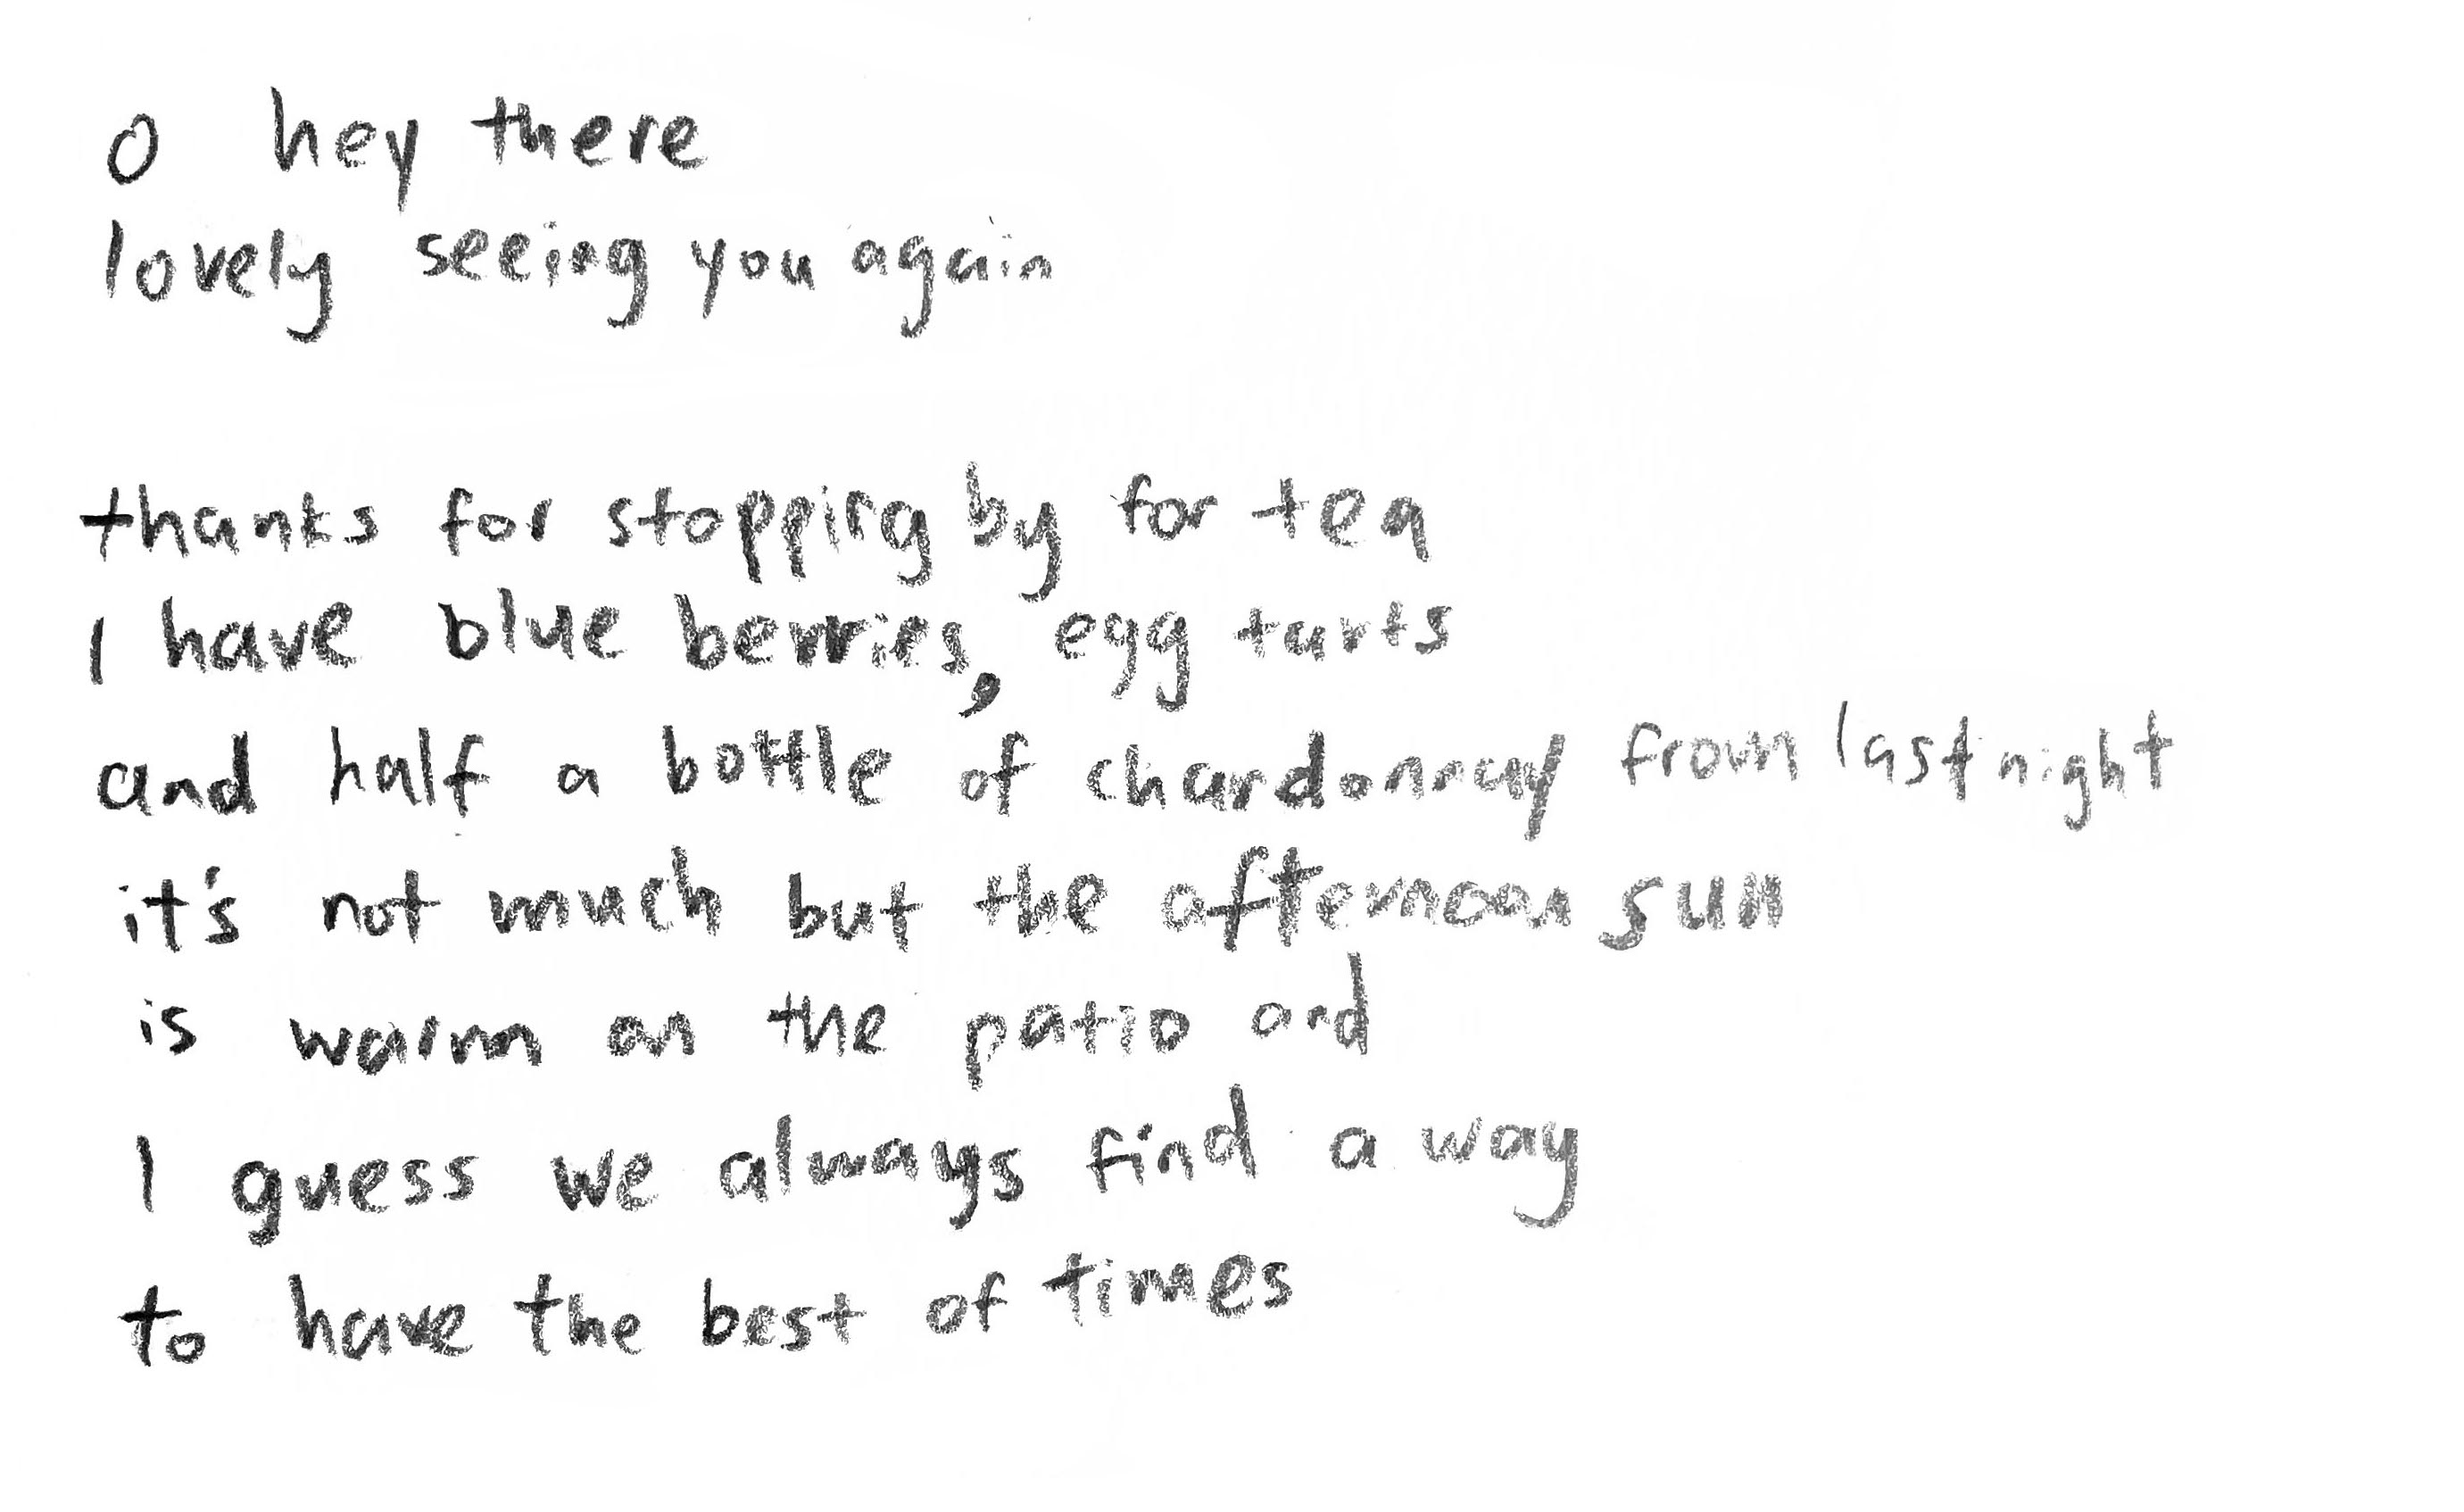 o hey there
lovely seeing you again
thanks for stopping by for tea
I have blue berries, egg tarts
and half a bottle of chardonnay from last night
it's not much but the afternoon sun
is warm on the patio and
I guess we always find a way
to have the best of times